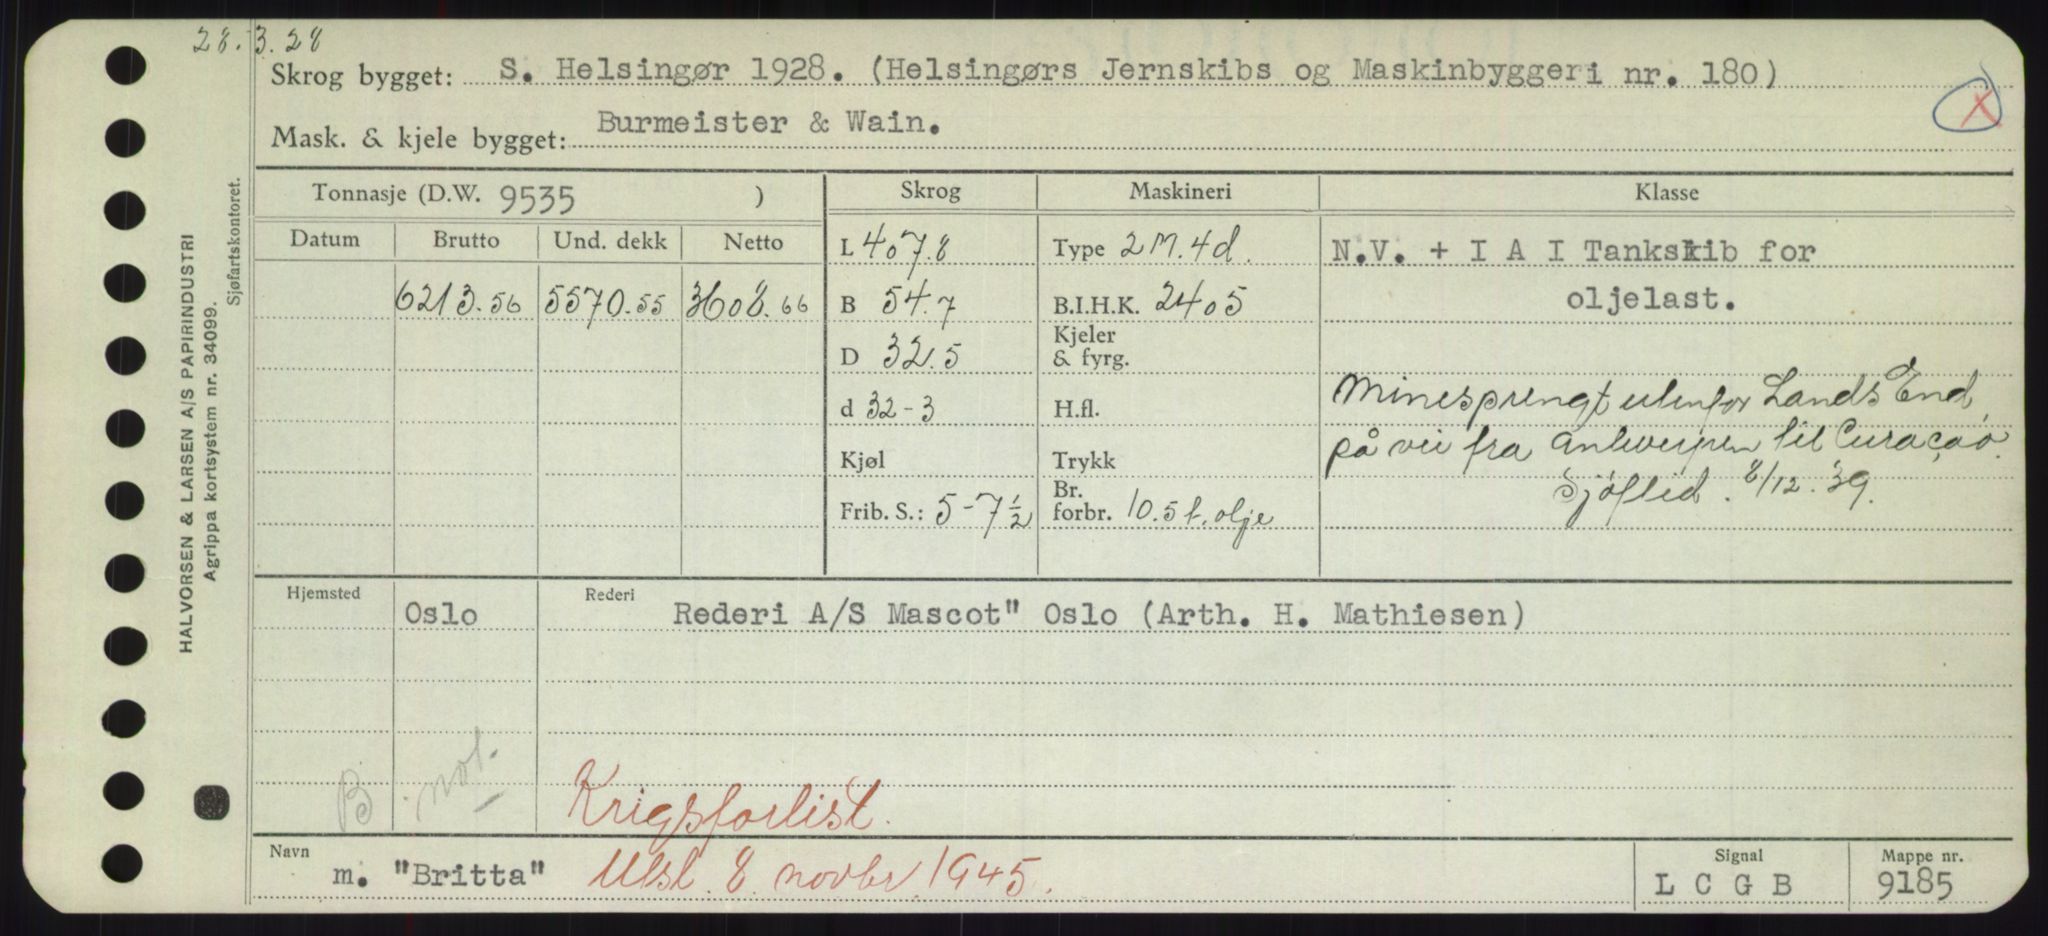 28.3.28
Skrog bygget: S. Helsingør 1928. (Helsingørs Jernskibs og Maskinbyggeri nr. 180)
X
Mask. & kjele bygget: Burmeister & Wain.
HALVORSEN & LARSEN A/S PAPIRINDUSTRI
Agrippa kortsystem nr. 34099.
Sjøfartskontoret.
Tonnasje (D.W. 9535 ) Skrog Maskineri Klasse
Datum Brutto Und. dekk Netto
L 407.8 Type 2 M. 4d. N.V. + I A I Tankskib for
6213.56 5570.55 3608.66 B 54.7 B.I.H.K. 2405 oljelast.
D 32.5 Kjeler & fyrg.
d 32-3 H.fl. Minesprengt utenfor Lands End,
Kjøl Trykk på vei fra Antwerpen til Curaçao.
Frib. S.: 5-7½ Br. forbr. 10.5 t. olje Sjøftid. 8/12.39.
Hjemsted Oslo Rederi Rederi A/S Mascot" Oslo (Arth. H. Mathiesen)
B not.
Krigsforlist.
Navn m. "Britta" Utsl. 8 novbr. 1945. Signal L C G B Mappe nr. 9185